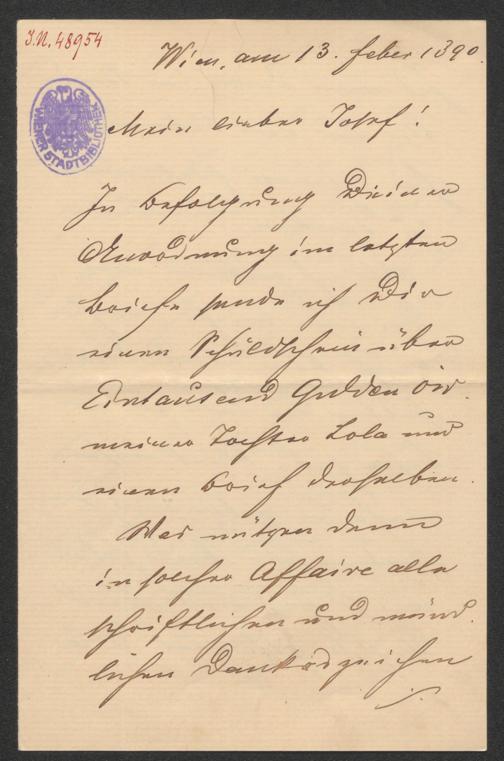 J.N. 48954
Wien, am 13. feber 1890.
WIENER STADTBIBLIOTHEK
Mein lieber Josef!
In Befolgung Deiner
Anordnung im letzten
Briefe sende ich Dir
einen Schuldschein über
Eintausend Gulden ö.W.
meiner Tochter Lola und
einen Brief derselben.
Was nützen denn
in solcher Affaire alle
schriftlichen und münd-
lichen Dankeszeichen